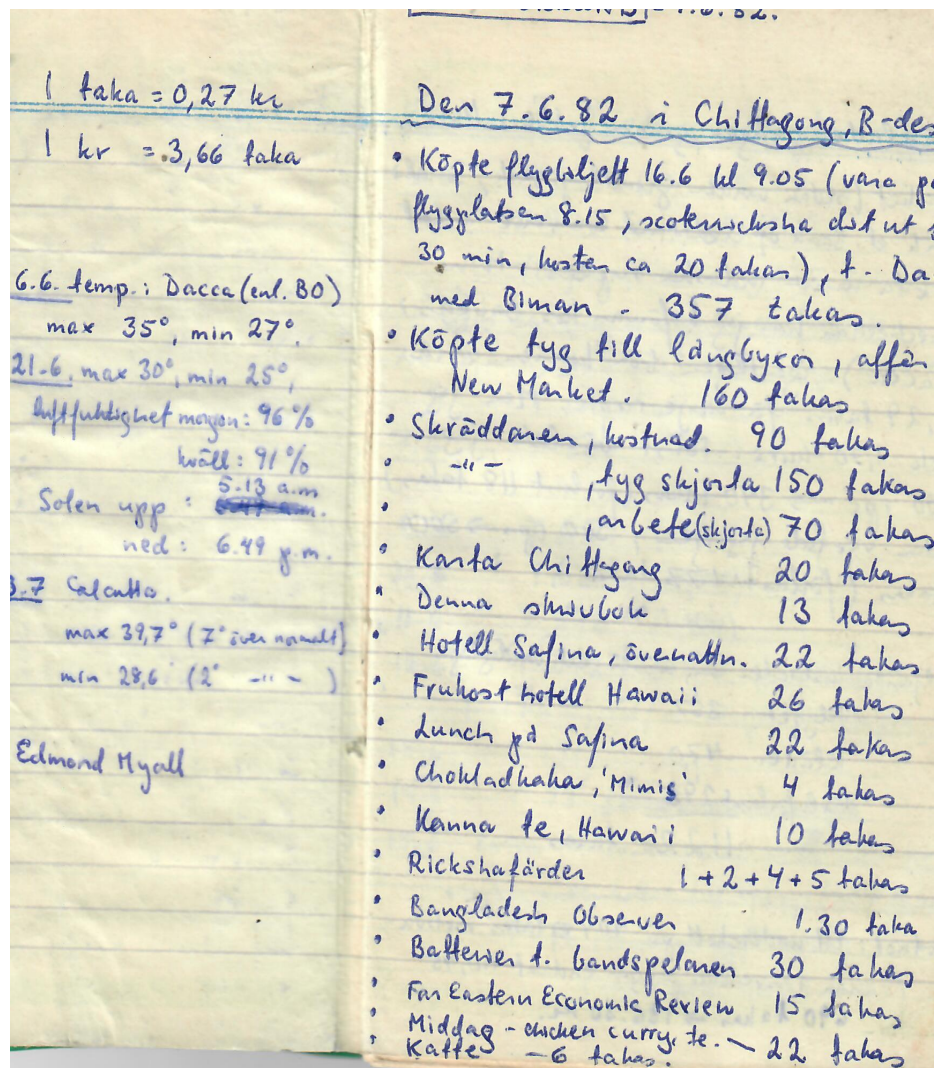 1 taka = 0,27 kr
1 kr = 3,66 taka
6.6. temp.: Dacca (enl. BO)
max 35°, min 27°.
21.6, max 30°, min 25°,
luftfuktighet morgon: 96 %
kväll: 91 %
5.13 a.m
Solen upp :
ned : 6.49 p.m.
3.7 Calcutta.
max 39,7° (7° över normalt)
min 28,6° (2° -"- )
Edmond Myall
7.6.82.
Den 7.6.82 i Chittagong, B-des
• Köpte flygbiljett 16.6 kl 9.05 (vara på
flygplatsen 8.15, scoterricksha dit ut
30 min, kostar ca 20 takas), t. Da
med Biman - 357 takas.
• Köpte tyg till långbyxor, affär
New Market. 160 takas
• Skräddaren, kostnad. 90 takas
• -"- , tyg skjorta 150 takas
• , arbete (skjorta) 70 takas
• Karta Chittagong 20 takas
• Denna skrivbok 13 takas
• Hotell Safina, övernattn. 22 takas
• Frukost hotell Hawaii 26 takas
• Lunch på Safina 22 takas
• Chokladkaka, 'Mimis' 4 takas
• Kanna te, Hawaii 10 takas
• Rickshafärder 1 + 2 + 4 + 5 takas
• Bangladesh Observer 1.30 taka
• Batterier t. bandspelaren 30 takas
• Far Eastern Economic Review 15 takas
• Middag - chicken curry, te. - 22 takas
• Kaffe - 6 takas.